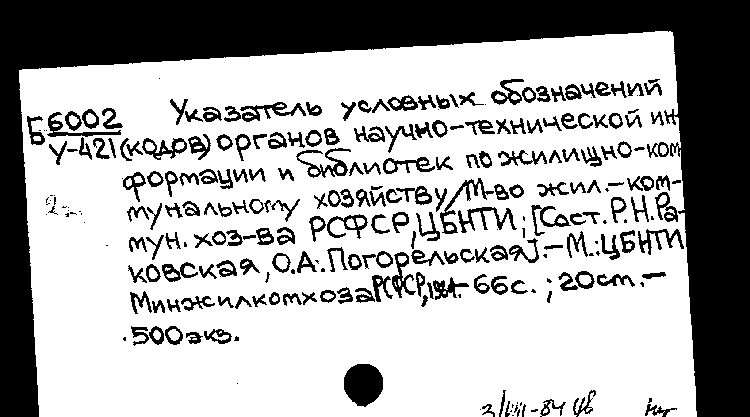 Б 6002 Указатель условных обозначений
У-421 (кодов) органов научно-технической ин-
формации и библиотек по жилищно-ком
мунальному хозяйству/М-во жил.-ком-
мун. хоз-ва РСФСР, ЦБНТИ; [Сост. Р.Н. Ра-
ковская, О.А. Погорельская].-М.:ЦБНТИ
Минжилкомхоза РСФСР, 1984.-66с.; 20см.-
500экз.
3/VIII-84